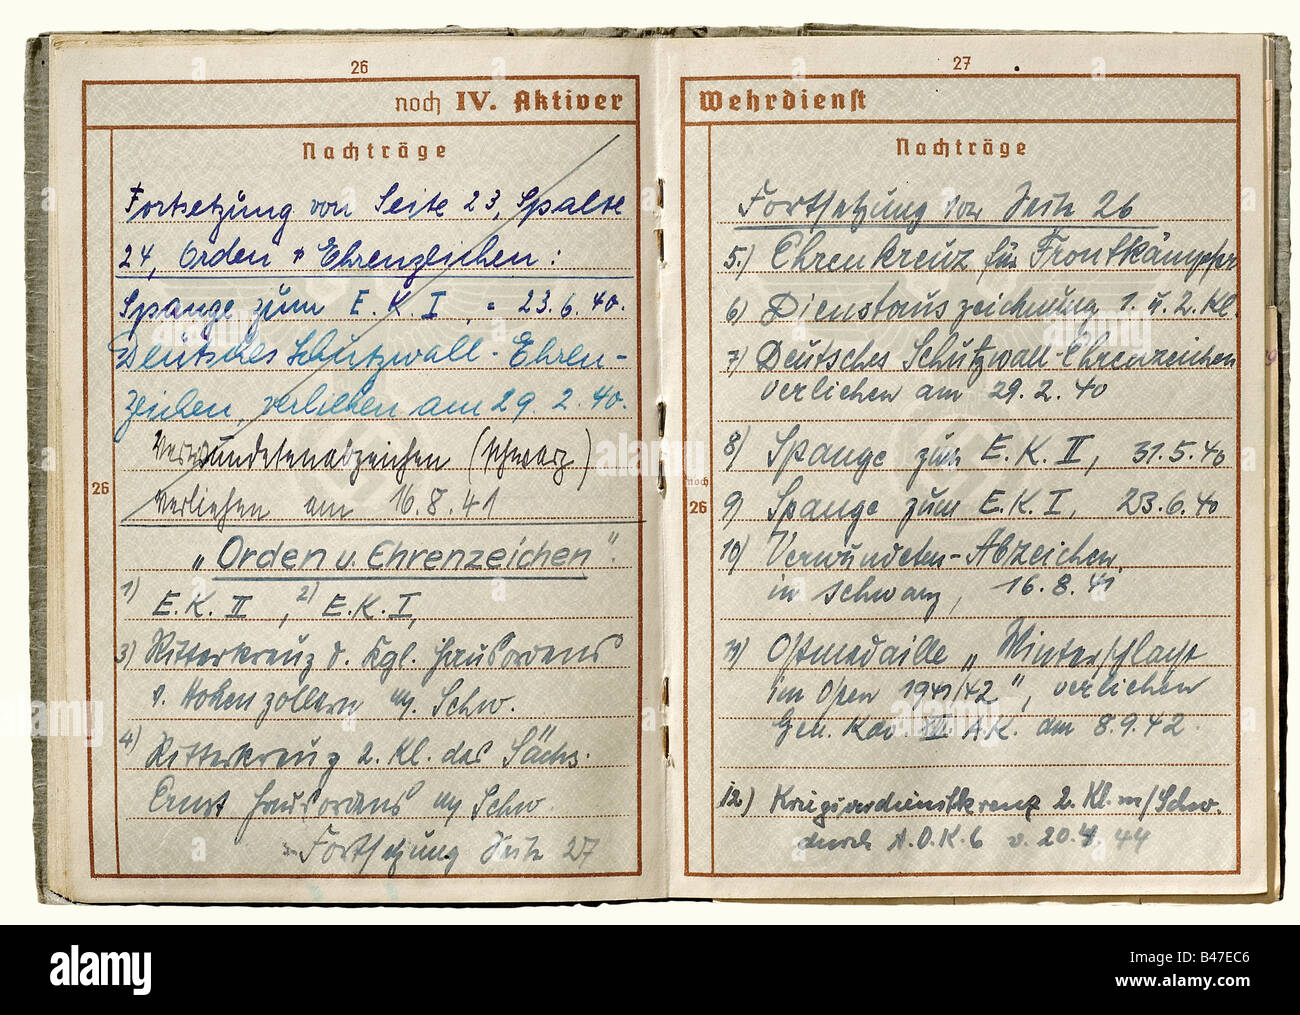 26
noch IV. Aktiver
Nachträge
Fortsetzung von Seite 23, Spalte
24, Orden u. Ehrenzeichen:
Spange zum E.K.I, 23.6.40.
Deutsches Schutzwall-Ehren-
zeichen, verliehen am 29.2.40.
Verwundetenabzeichen (schwarz)
verliehen am 16.8.41
26
„Orden u. Ehrenzeichen".
1) E.K.II, 2) E.K.I,
3) Ritterkreuz d. Kgl. Hausordens
v. Hohenzollern m. Schw.
4) Ritterkreuz 2. Kl. des Sächs.
Ernst Hausordens m. Schw.
Fortsetzung Seite 27
27
Wehrdienst
Nachträge
Fortsetzung von Seite 26
5.) Ehrenkreuz für Frontkämpfer
6) Dienstauszeichnung 1. u. 2. Kl.
7) Deutsches Schutzwall-Ehrenzeichen
verliehen am 29.2.40
8) Spange zum E.K.II, 31.5.40
noch
26
9) Spange zum E.K.I, 23.6.40
10) Verwundeten-Abzeichen
in schwarz, 16.8.41
11) Ostmedaille „Winterschlacht
im Osten 1941/42", verliehen
Gen. Kdo A.K. am 8.9.42.
12) Kriegsverdienstkreuz 2. Kl. m/Schw.
durch A.O.K.6 v. 20.4.44
alamy
a
alamy
Image ID: B47EC6
www.alamy.com